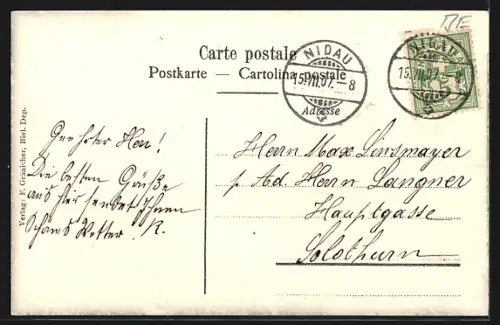 Carte postale
Postkarte — Cartolina postale
NIDAU
15.VII.07.–8
Adresse
NIDAU
15.VII.07.–8
Verlag: F. Gränicher, Biel. Dep.
Geehrter Herr!
Die besten Grüße
aus hier sendet Ihnen
Schöns Wetter. R.
Herrn Max Linsmayer
p. Ad. Herrn Langner
Hauptgasse
Solothurn